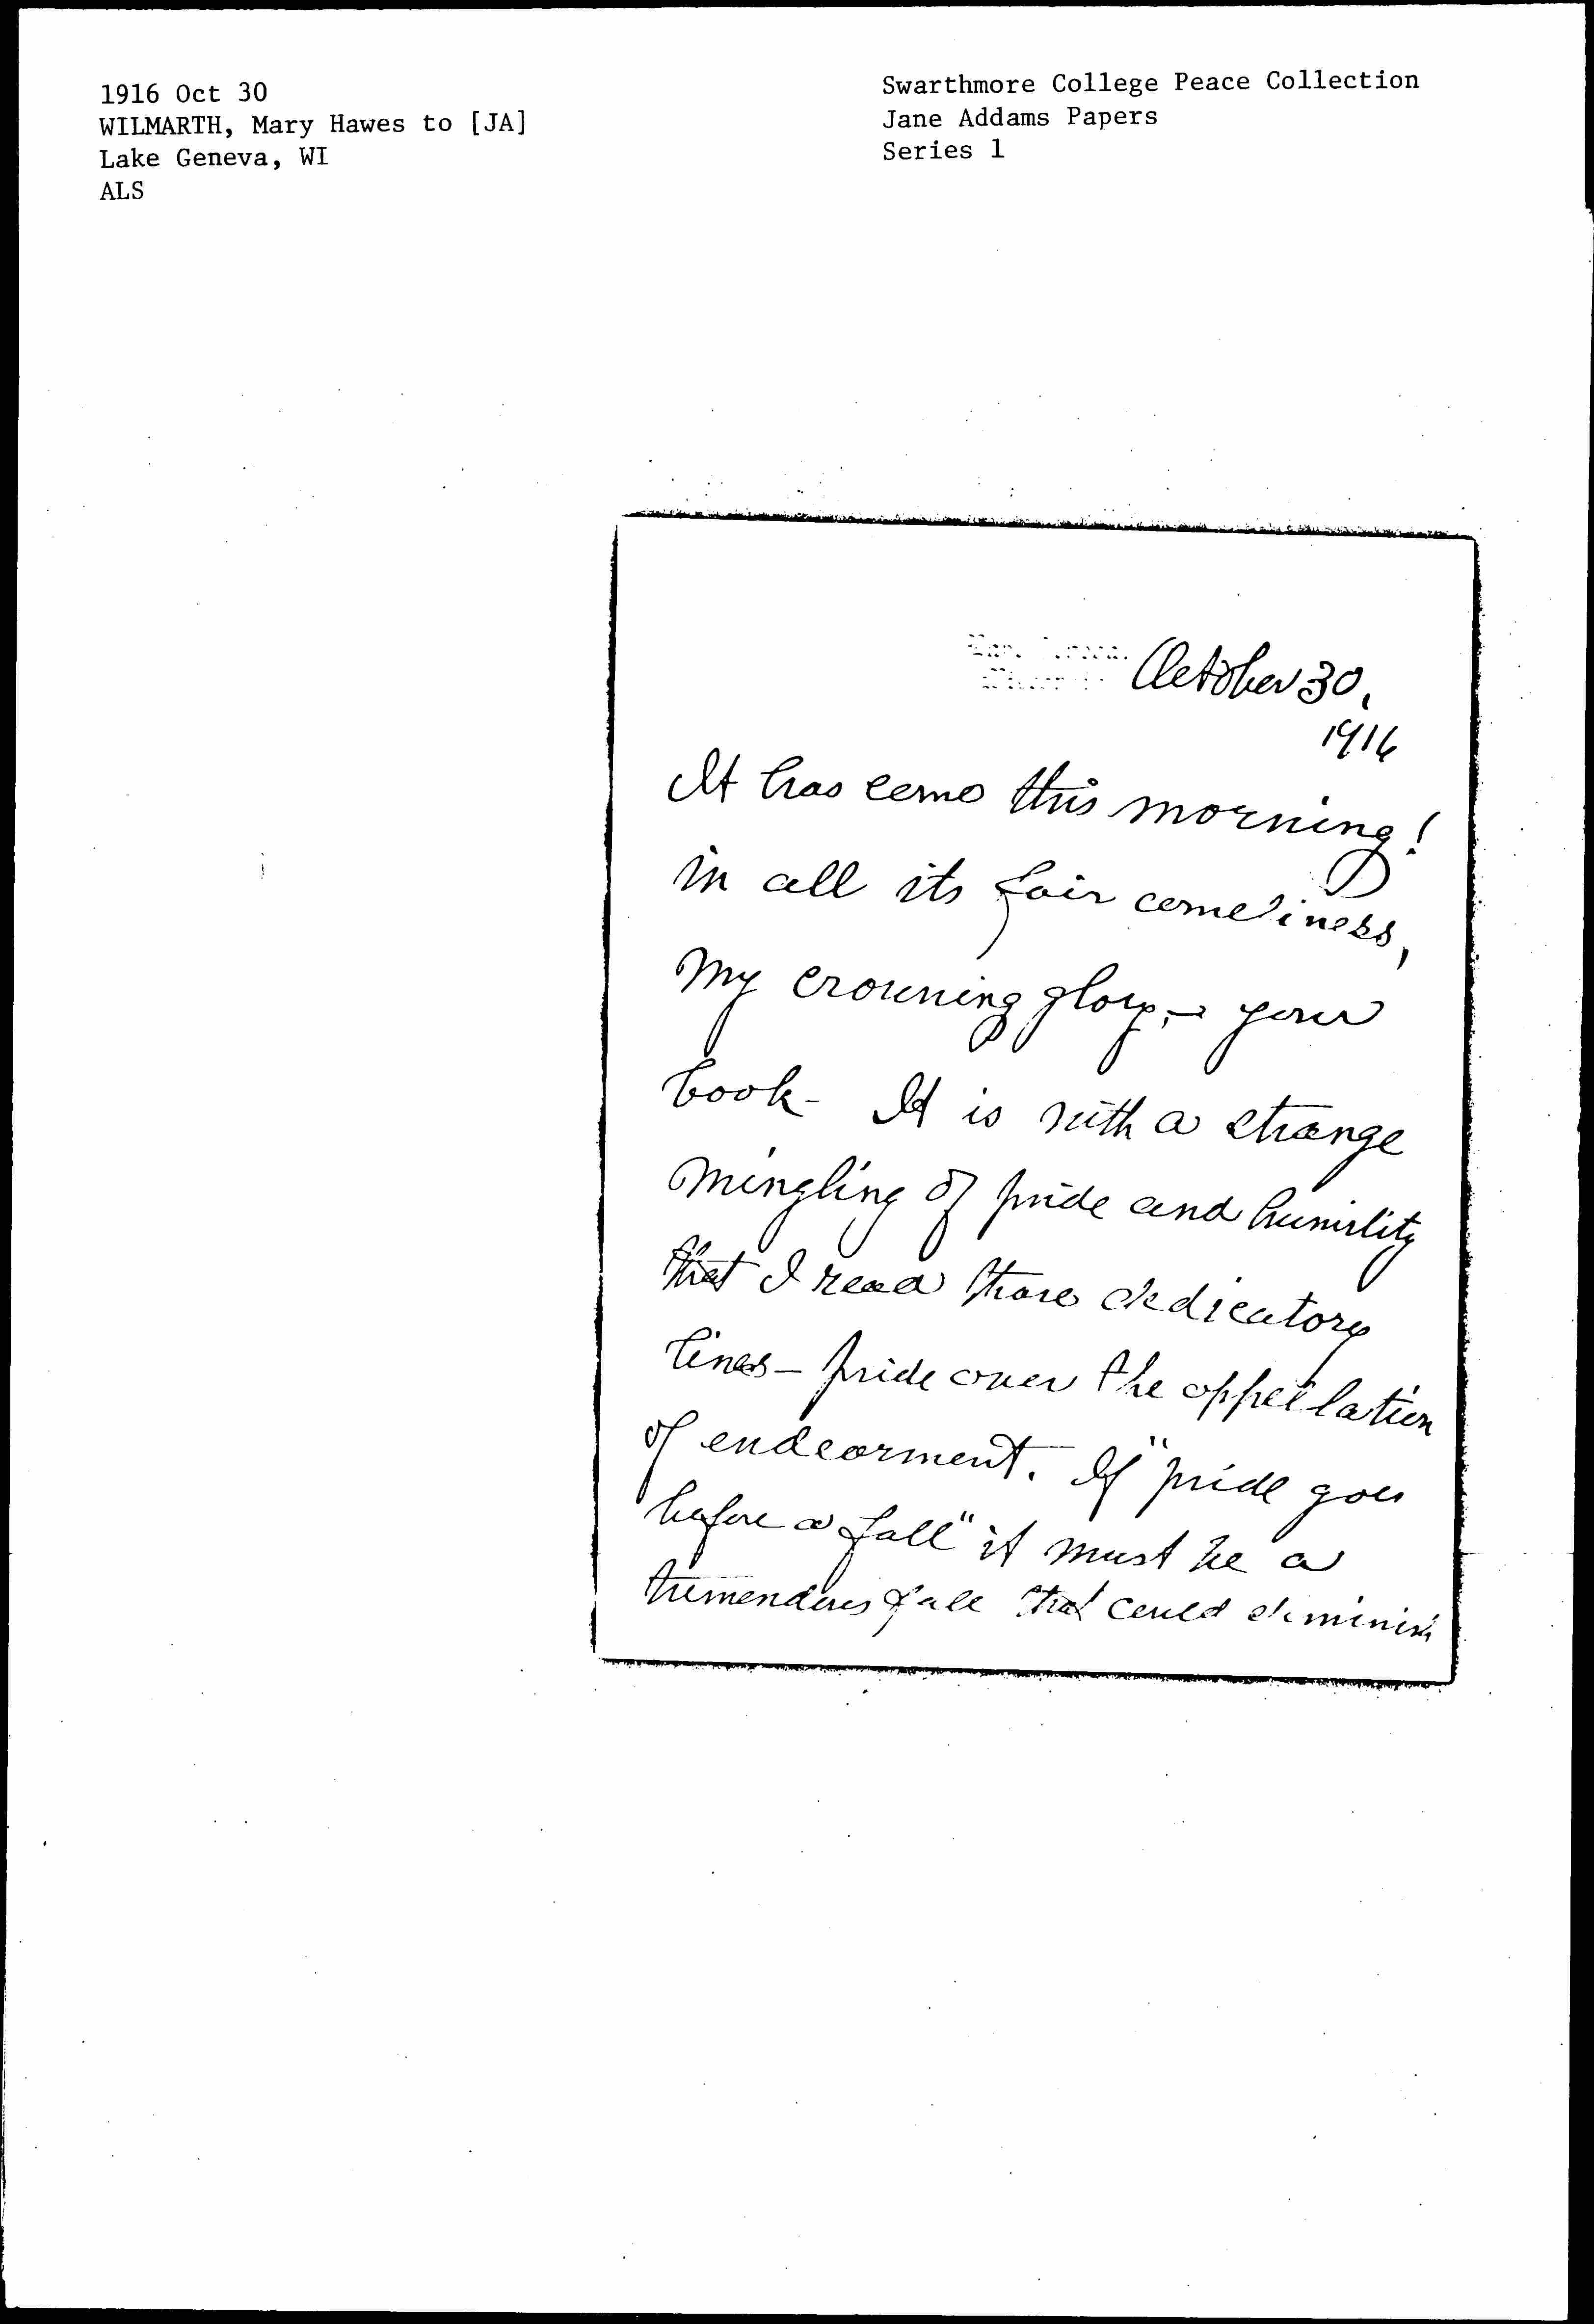 1916 Oct 30
WILMARTH, Mary Hawes to [JA]
Lake Geneva, WI
ALS
Swarthmore College Peace Collection
Jane Addams Papers
Series 1
October 30,
1916
It has come this morning!
in all its fair comeliness,
my crowning glory,— your
book- It is with a strange
mingling of pride and humility
that I read those dedicatory
lines— pride over the appellation
of endearment. If "pride goes
before a fall" it must be a
tremendous fall that could diminish